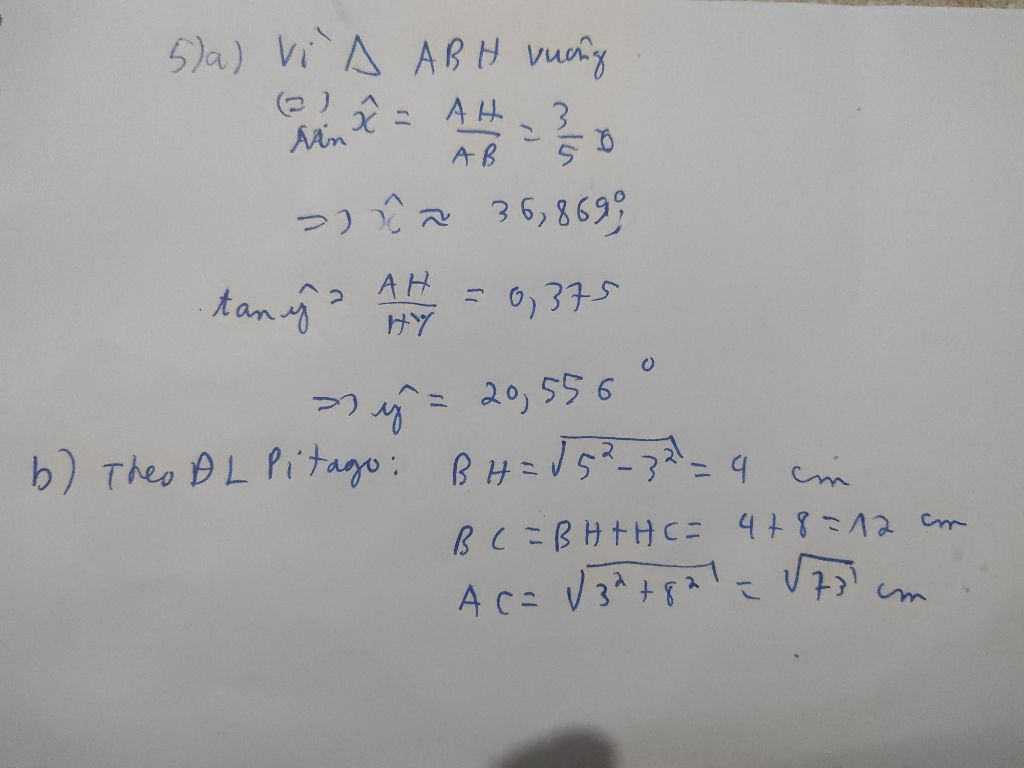 5)a) Vì Δ ABH vuông
(=) sin x̂ = AH/AB = 3/5
=> x̂ ≈ 36,869°;
tan ŷ = AH/HY = 0,375
=> ŷ = 20,556°
b) Theo ĐL Pitago: BH = √(5²-3²) = 4 cm
BC = BH+HC = 4+8 = 12 cm
AC = √(3²+8²) = √73 cm